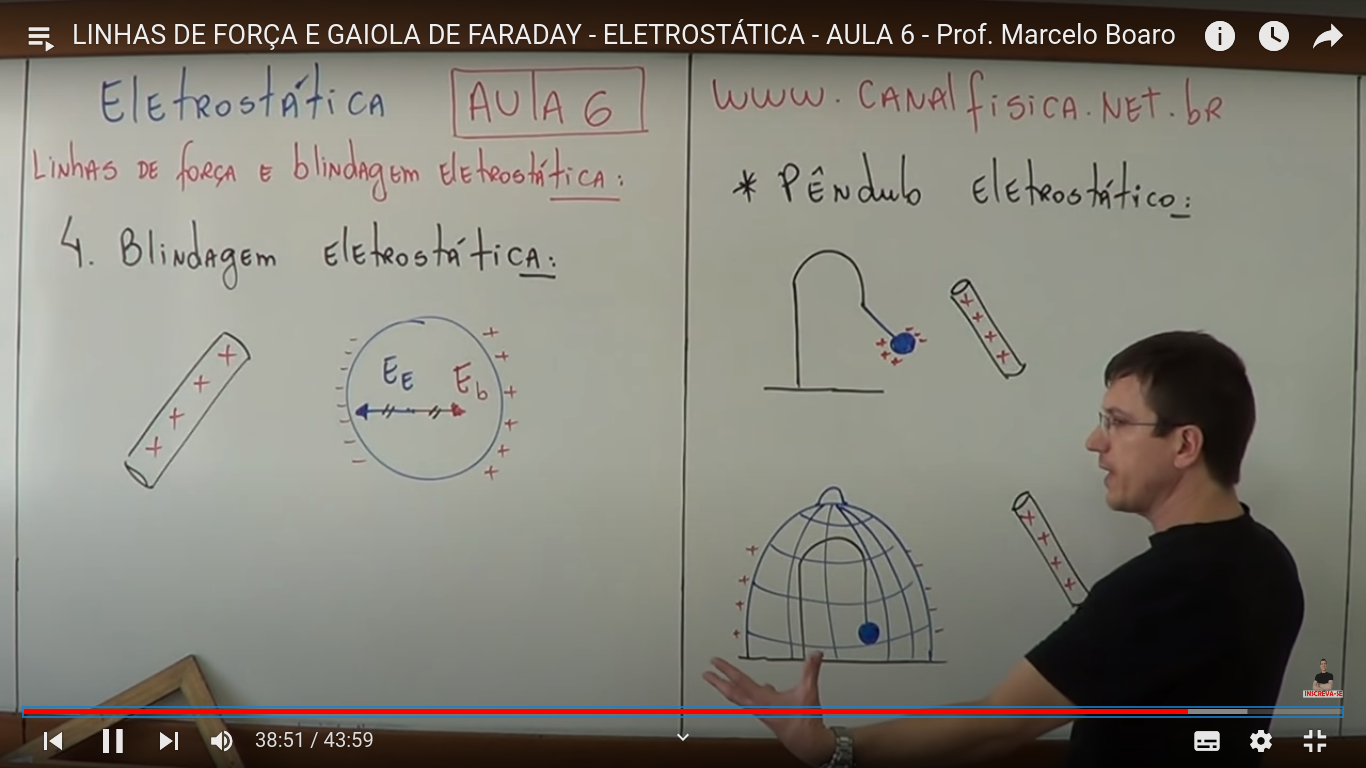 LINHAS DE FORÇA E GAIOLA DE FARADAY - ELETROSTÁTICA - AULA 6 - Prof. Marcelo Boaro
Eletrostática
AULA 6
Linhas de força e blindagem eletrostática:
4. Blindagem eletrostática:
+ + + +
- - - - - - -
E_E
E_b
+ + + + + +
www.canalfisica.net.br
* Pêndulo eletrostático:
+ + + +
- - -
+ + + +
+ + + +
- - - - -
+ + + +
INSCREVA-SE
38:51 / 43:59